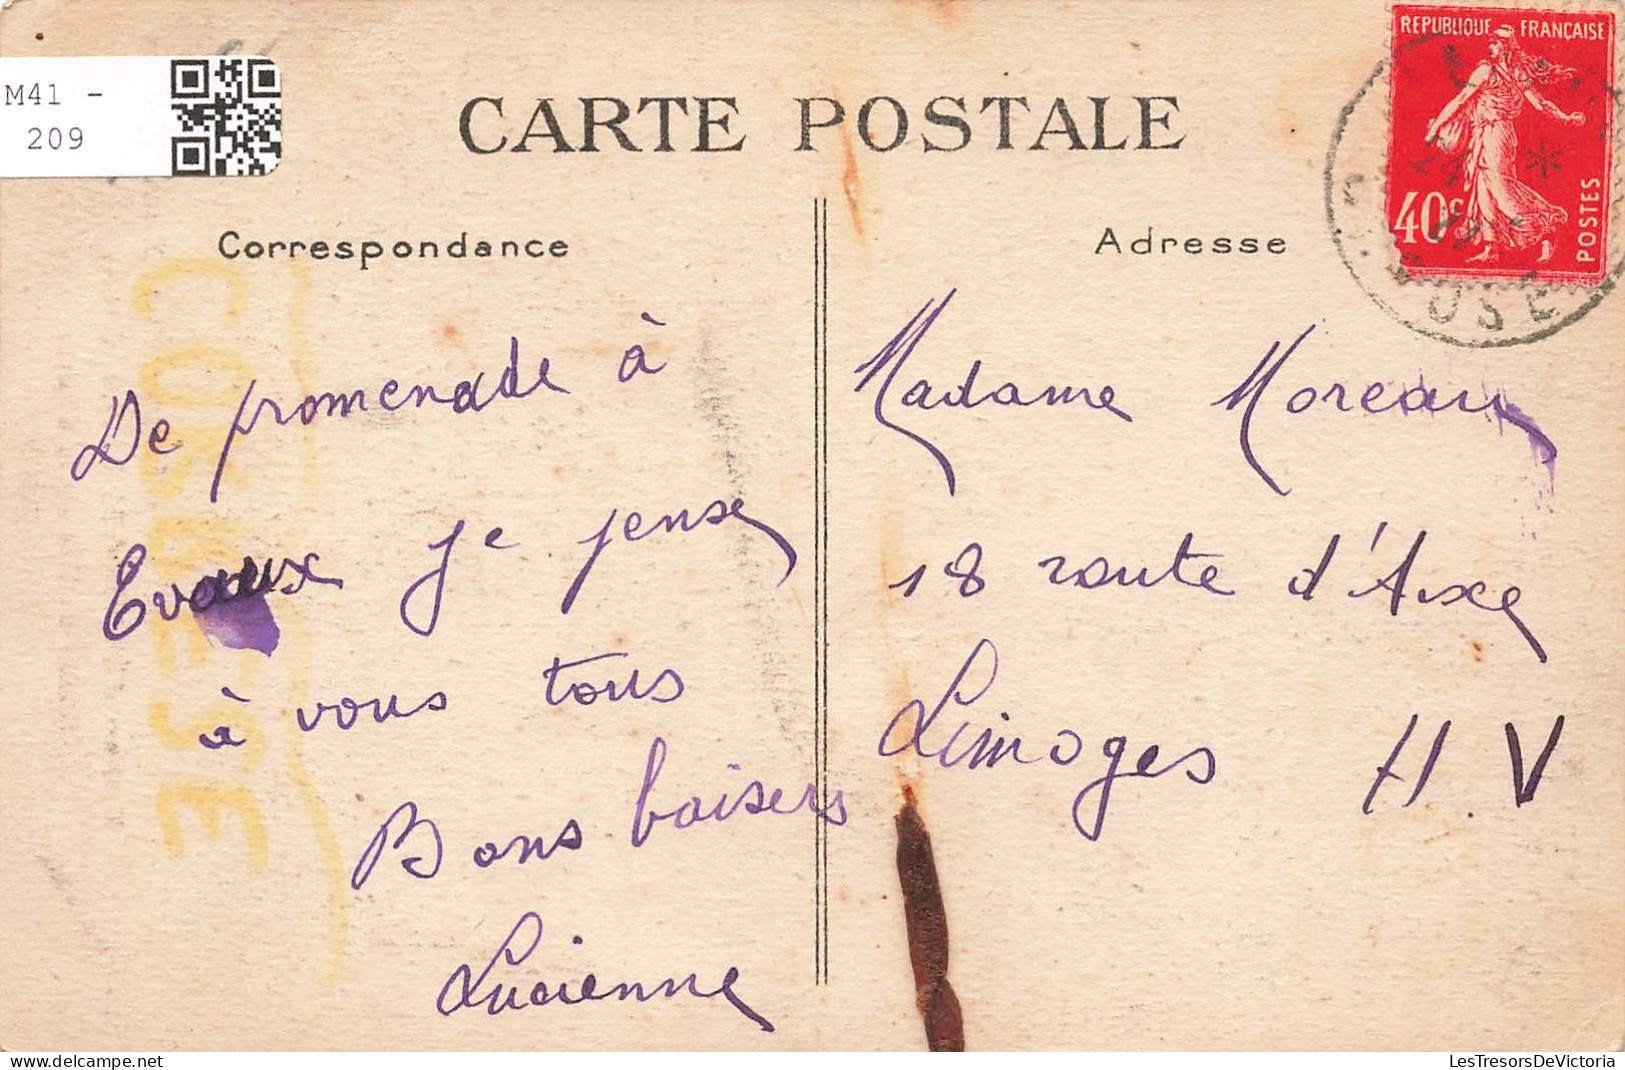 M41 -
209
CARTE POSTALE
REPUBLIQUE FRANÇAISE
40c
POSTES
Correspondance
De promenade à
Evaux je pense
à vous tous
Bons baisers
Lucienne
CORRESE
Adresse
Madame Moreau
18 route d'Aixe
Limoges H.V
LesTresorsDeVictoria